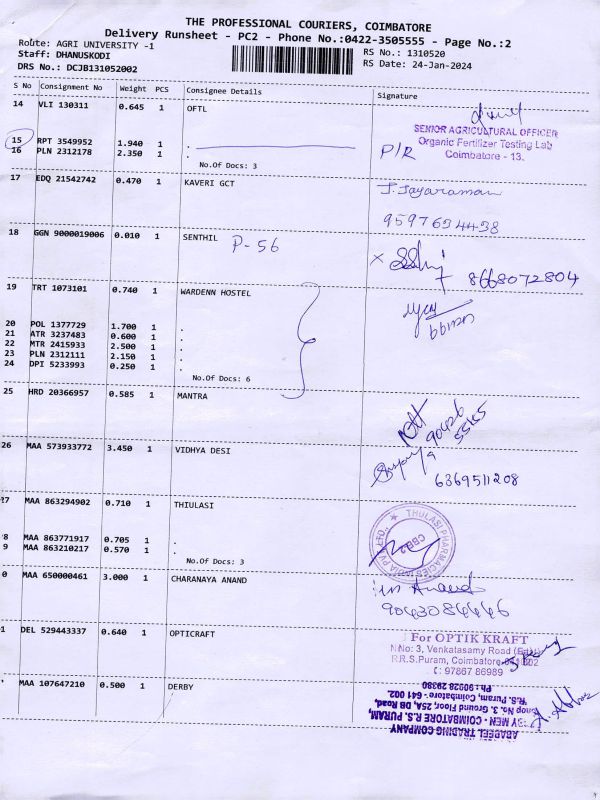 THE PROFESSIONAL COURIERS, COIMBATORE
Delivery Runsheet - PC2 - Phone No.:0422-3505555 - Page No.:2
Route: AGRI UNIVERSITY -1
Staff: DHANUSKODI
DRS No.: DCJB131052002
RS No.: 1310520
RS Date: 24-Jan-2024
S No Consignment No Weight PCS Consignee Details Signature
14 VLI 130311 0.645 1 OFTL
SENIOR AGRICULTURAL OFFICER
Organic Fertilizer Testing Lab
Coimbatore - 13.
P/R
15 RPT 3549952 1.940 1 .
16 PLN 2312178 2.350 1 .
No.Of Docs: 3
17 EDQ 21542742 0.470 1 KAVERI GCT
J. Jayaraman
18 GGN 9000019006 0.010 1 SENTHIL P-56
8668072804
19 TRT 1073101 0.740 1 WARDENN HOSTEL
20 POL 1377729 1.700 1 .
21 ATR 3237483 0.600 1 .
22 MTR 2415933 2.500 1 .
23 PLN 2312111 2.150 1 .
24 DPI 5233993 0.250 1 .
No.Of Docs: 6
25 HRD 20366957 0.585 1 MANTRA
90426
55155
26 MAA 573933772 3.450 1 VIDHYA DESI
6369511208
27 MAA 863294902 0.710 1 THIULASI
THULASI PHARMACIES INDIA PVT. LTD.,
CBB2
8 MAA 863771917 0.705 1 .
9 MAA 863210217 0.570 1 .
No.Of Docs: 3
0 MAA 650000461 3.000 1 CHARANAYA ANAND
Anand
9043084446
1 DEL 529443337 0.640 1 OPTICRAFT
For OPTIK KRAFT
N.No: 3, Venkatasamy Road (East)
R.R.S.Puram, Coimbatore-641002
C: 97867 86989
MAA 107647210 0.500 1 DERBY
ABABEEL TRADING COMPANY
BY MEN - COIMBATORE R.S. PURAM,
Shop No. 3, Ground Floor, 25A, DB Road,
R.S. Puram, Coimbatore - 641 002.
Ph:90928 29380
A. Abbas